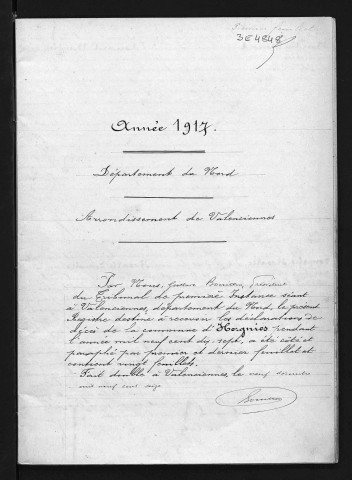 3E4848
Année 1917.
Département du Nord
Arrondissement de Valenciennes
Par Nous, Gustave Président
du Tribunal de première Instance séant
à Valenciennes, département du Nord, le présent
Registre destiné à recevoir les déclarations de
décès de la commune d'Hergnies pendant
l'année mil neuf cent dix sept, a été coté et
paraphé par premier et dernier feuillet et
contient vingt feuillets.
Fait double à Valenciennes, le neuf
mil neuf cent seize